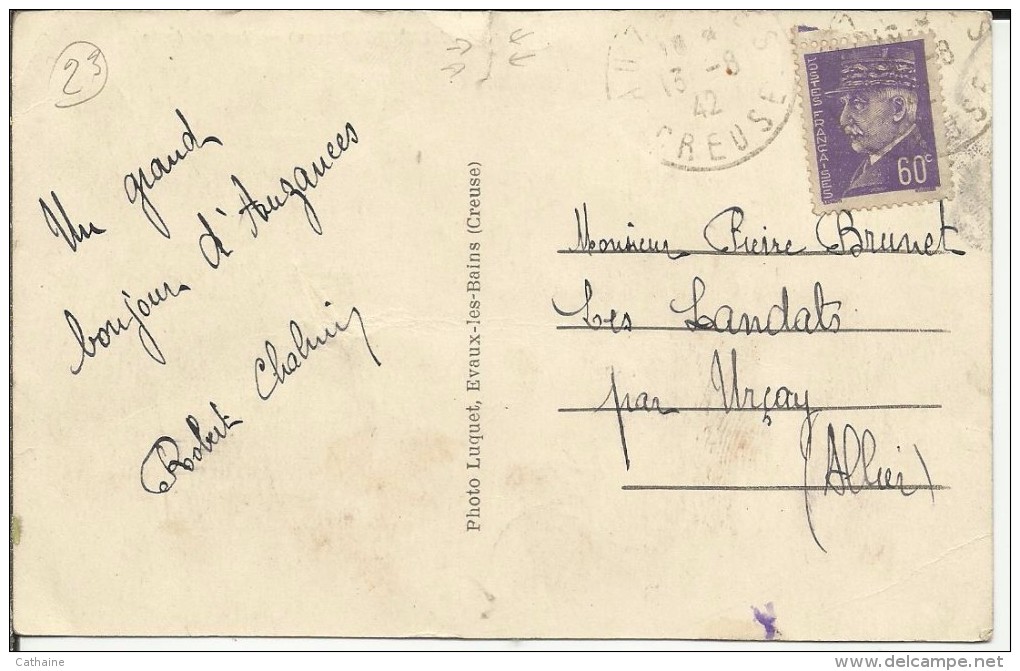 23
Un grand
bonjour d'Auzances
Robert
Photo Luquet, Evaux-les-Bains (Creuse)
13 -8
42
CREUSE
-8
POSTES FRANÇAISES
60c
Monsieur Pierre Brunet
Les Landats
par Urçay
(Allier)
Cathaine
www.delcampe.net